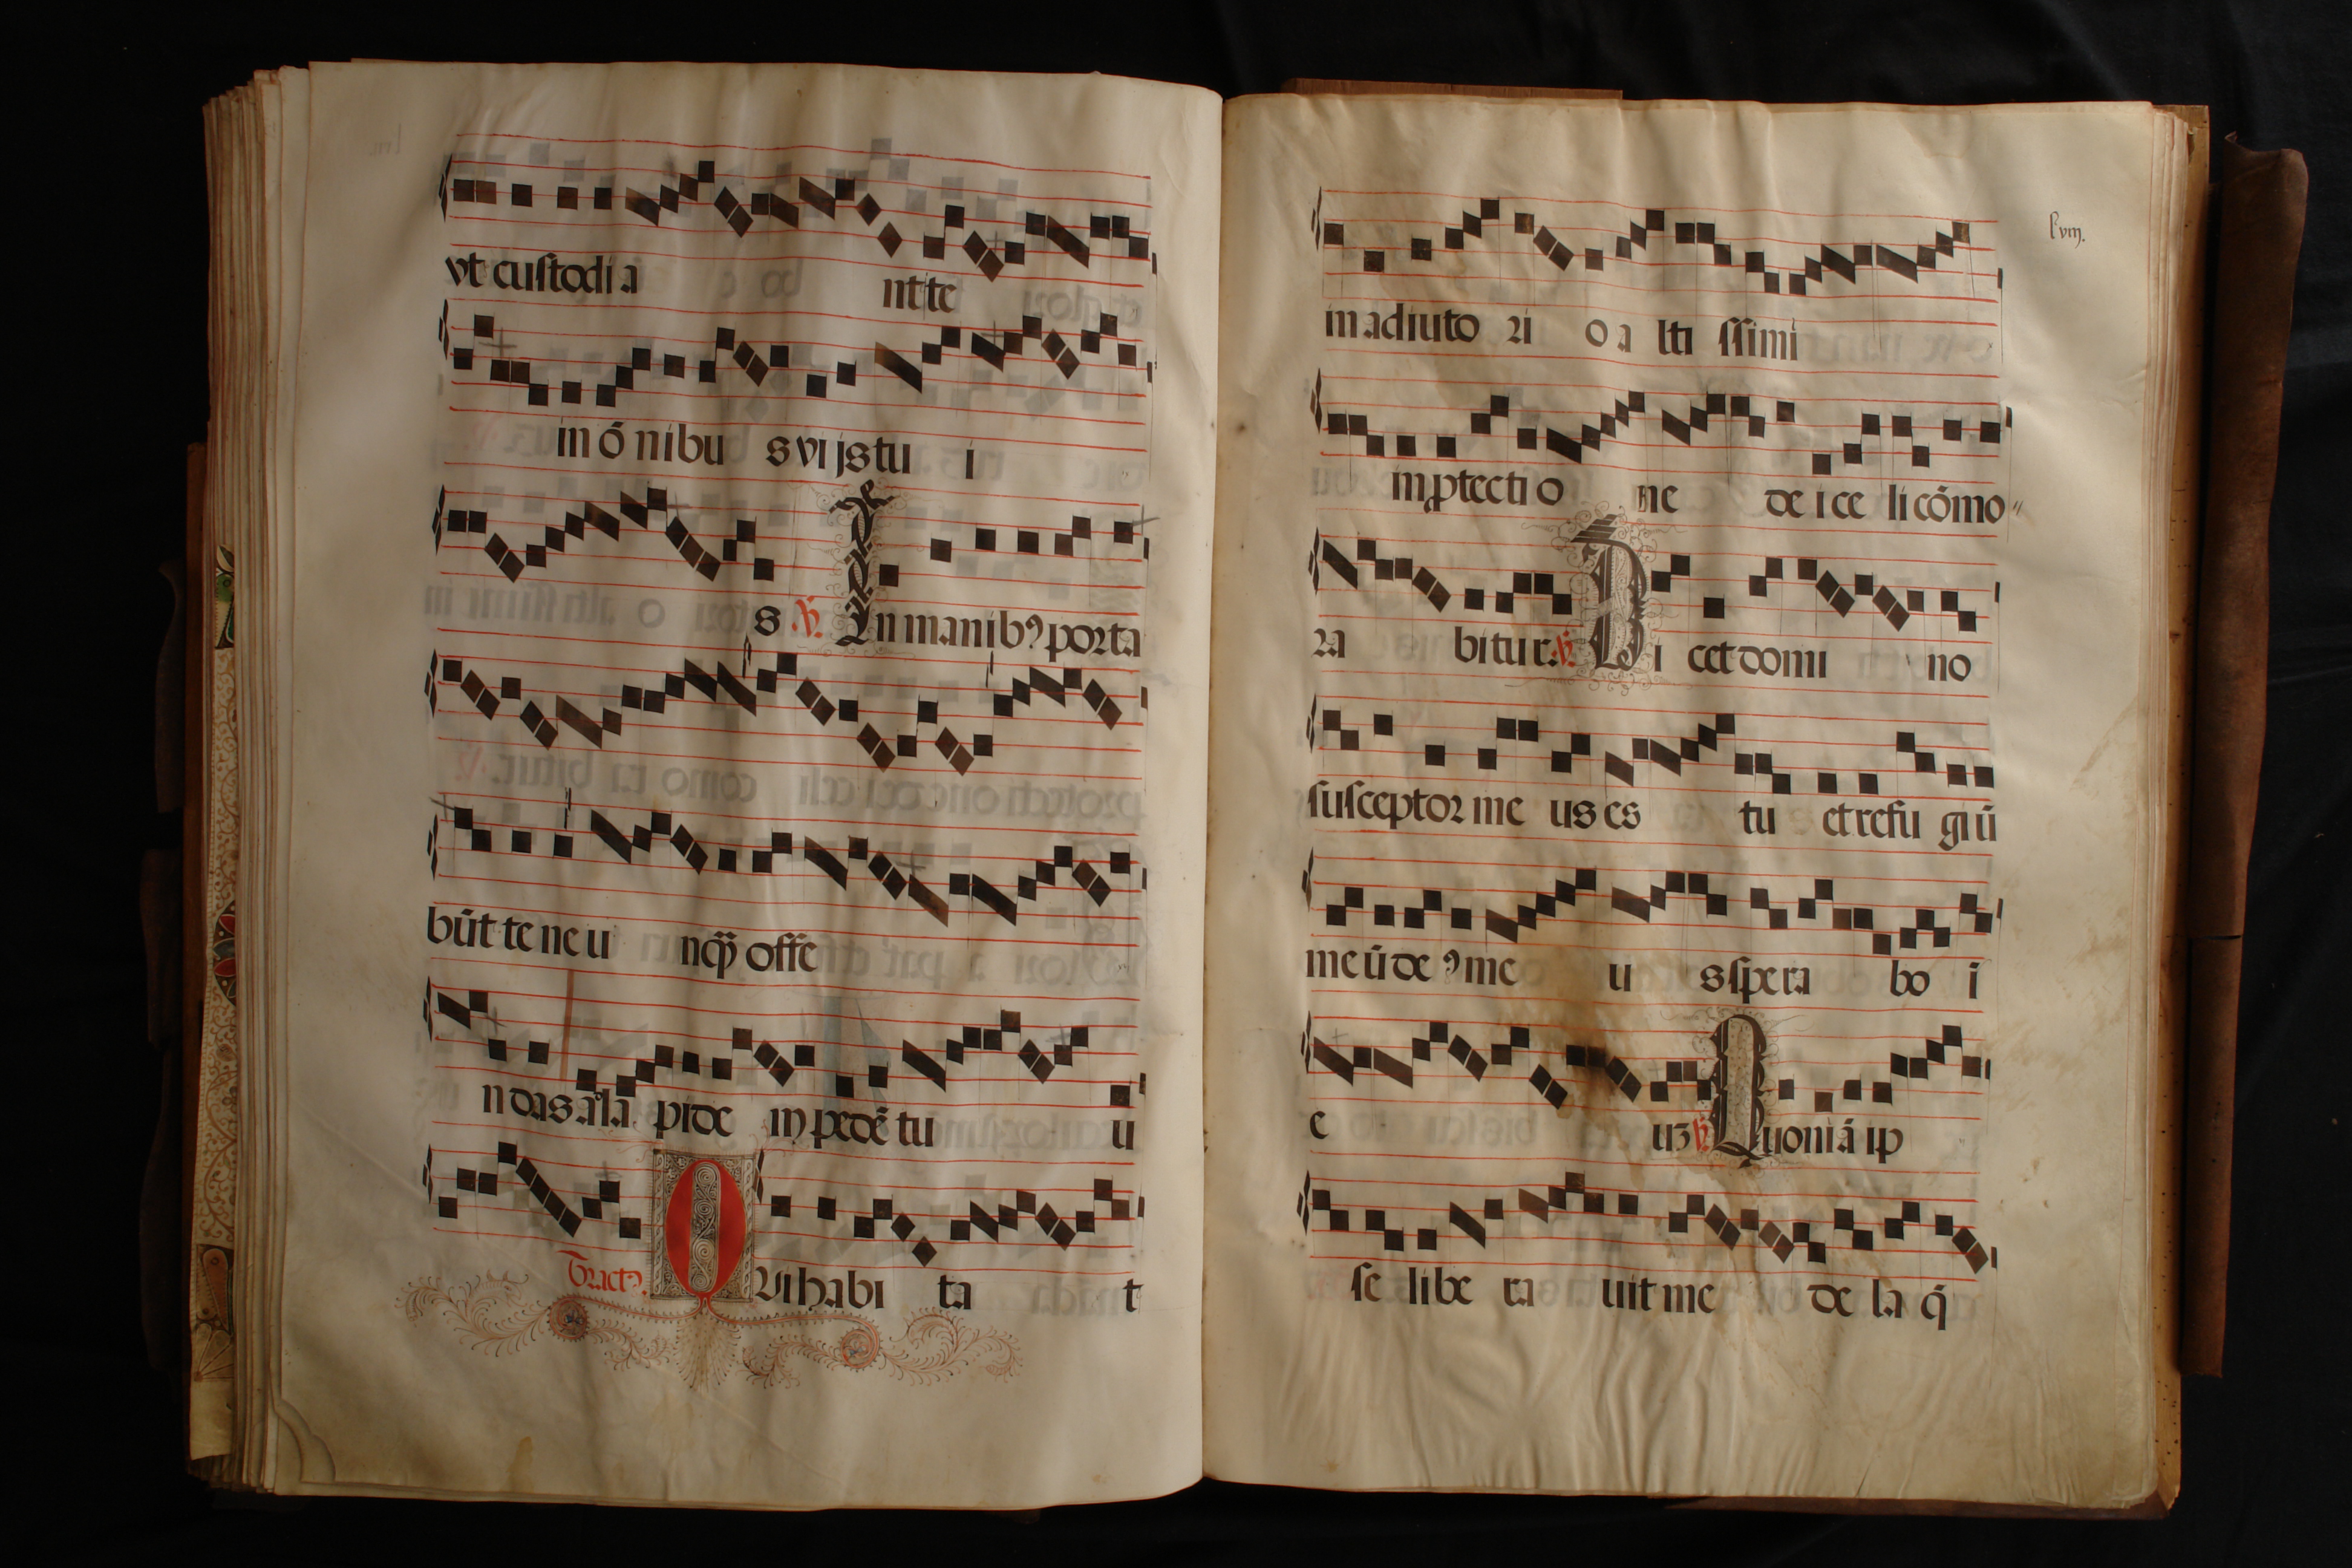 vt custodi a ntte
in õ nibu s vi js tu i
s ℣. In manibꝯ porta
būt te ne u nqꝫ offe
n das a la pide m pedē tu u
Tractꝯ. QUi habi ta t
lviij.
in adiuto ri o a lti ssimi
in ꝓtecti o ne de i ce li cōmo
ra bitur. ℣. Di cet domi no
susceptor me us es tu et refu giū
meū de ꝯ me u s spe ra bo i
e uʒ ℣. Quoniā ip
se libe ra uit me de la q̄